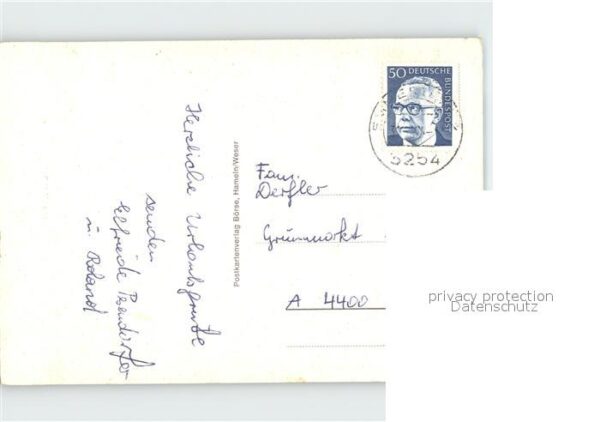 50 DEUTSCHE
BUNDESPOST
3254
Herzliche Urlaubsgrüße
senden
Elfriede
u. Roland
Postkartenverlag Börse, Hameln/Weser
Fam.
Derfler
Grünmarkt
A 4400
privacy protection
Datenschutz